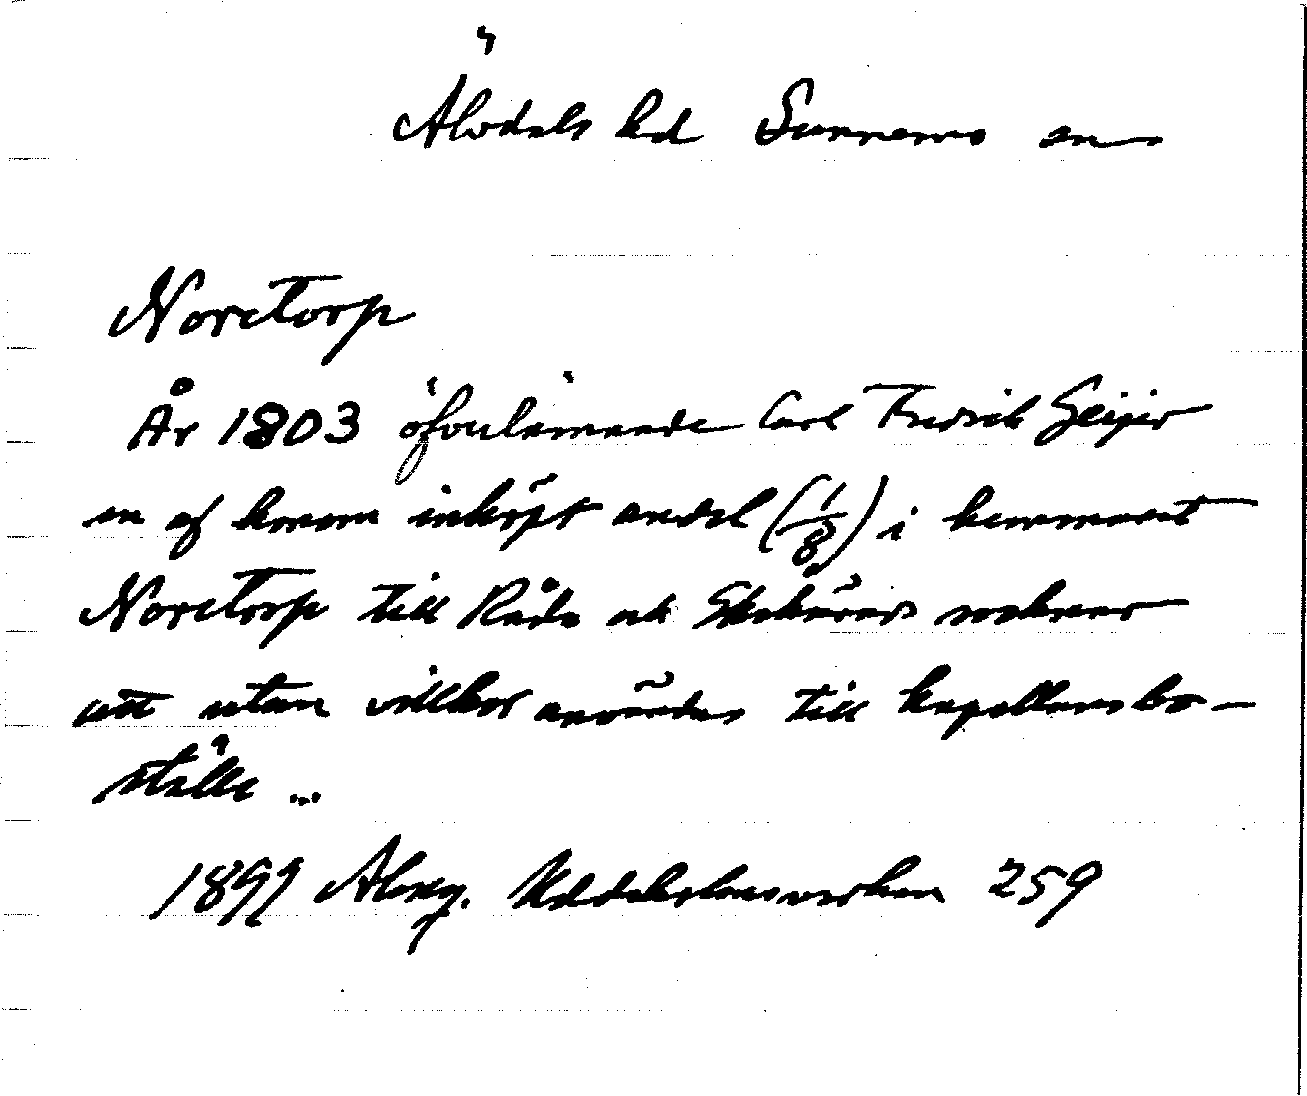 Älvdals hd Sunnemo sn
Noretorp
År 1803 öfverlämnade Carl Fredrik Geijer
en af honom inköpt andel (1/8) i hemmanet
Noretorp till Råda och Ekshärads socknar
att utan villkor användas till kapellansbo-
ställe ...
1899 Almq. Uddeholmsverken 259